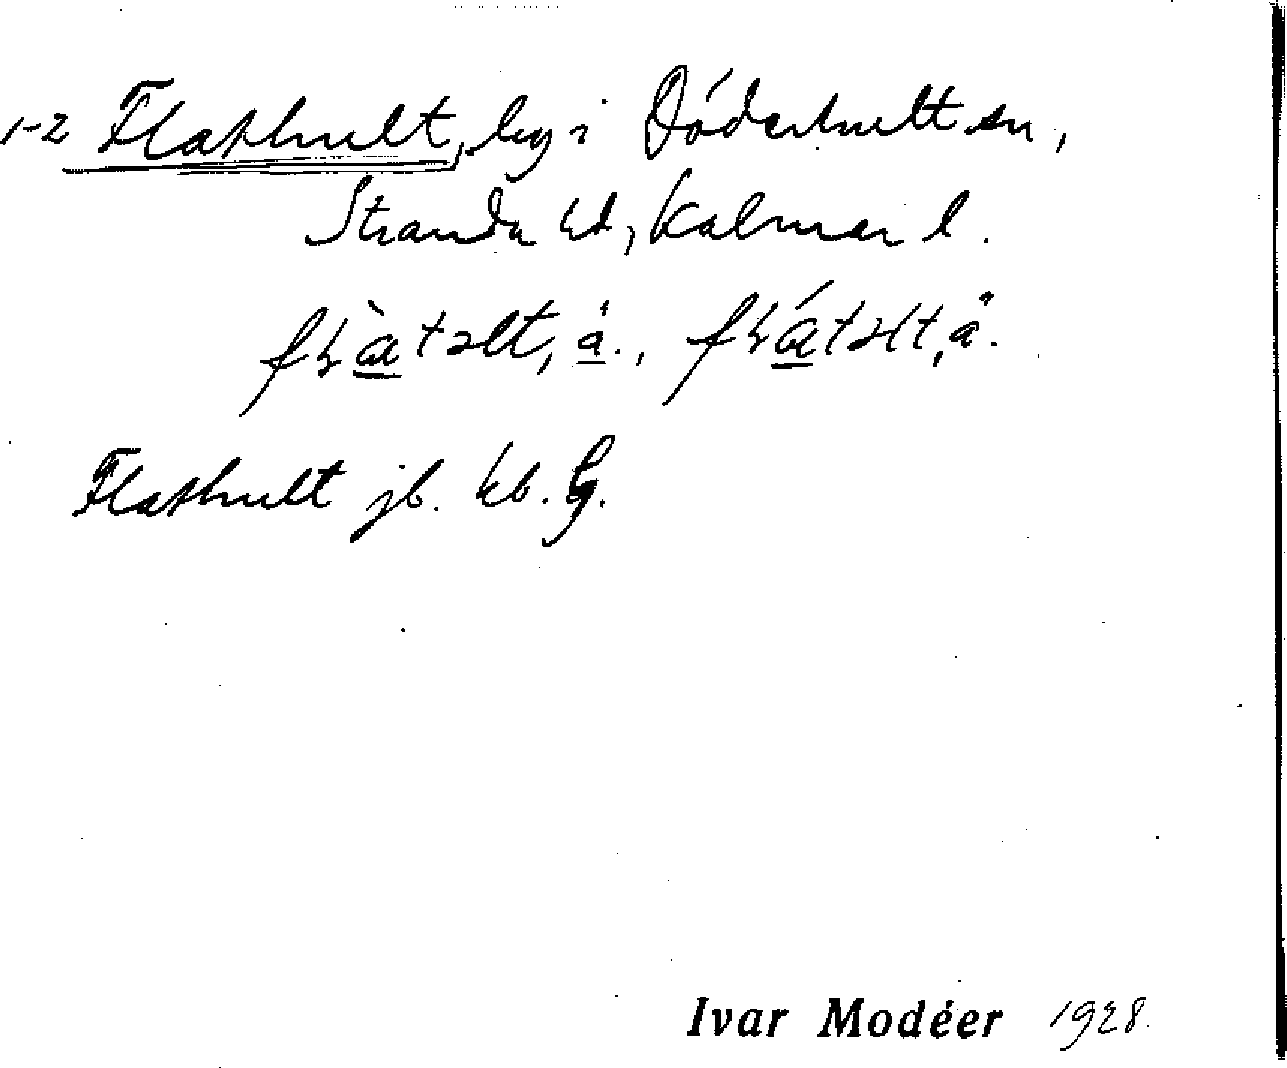 1-2 Flathult, by i Döderhult sn,
Stranda hd, Kalmar l.
Flathult jb. kb. G.
Ivar Modéer 1928.